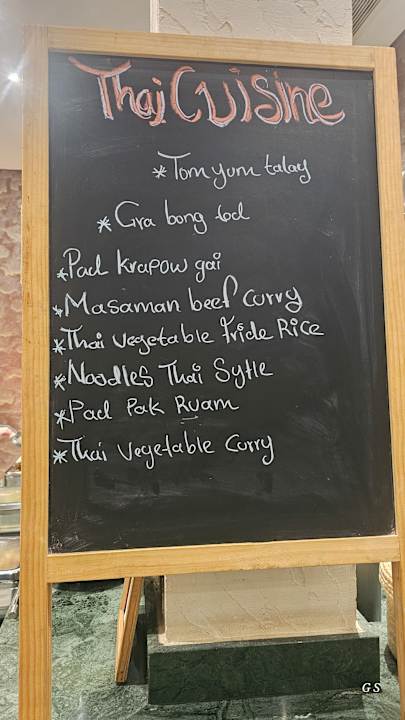 Thai Cuisine
*Tom yum talay
*Gra bong tod
*Pad krapow gai
*Masaman beef curry
*Thai vegetable fride Rice
*Noodles Thai Sytle
*Pad Pak Ruam
*Thai vegetable Curry
GS